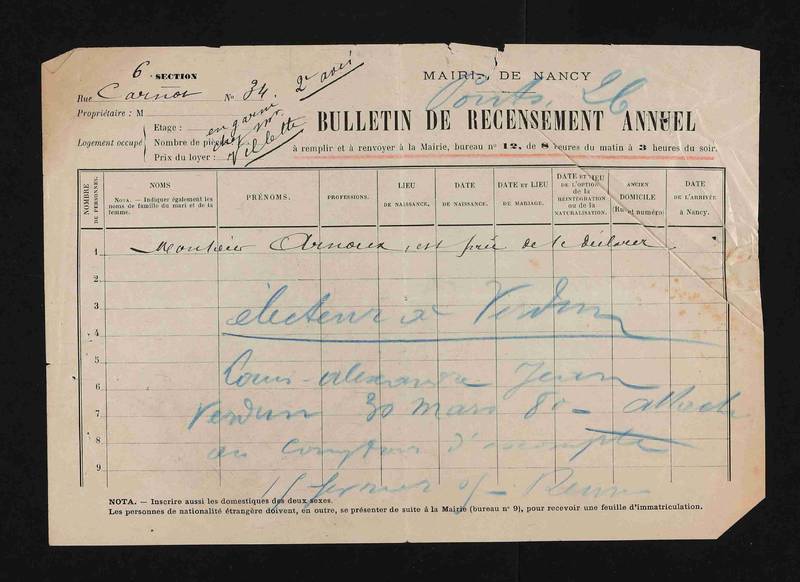 6 SECTION
Rue Carnot No 34. 2e avis
Propriétaire : M
Logement occupé
Etage :
Nombre de pièces
Prix du loyer :
en garni
chez Mr.
Villette
MAIRIE DE NANCY
Ponts, 26
BULLETIN DE RECENSEMENT ANNUEL
à remplir et à renvoyer à la Mairie, bureau n° 12, de 8 heures du matin à 3 heures du soir.
NOMBRE DE PERSONNES.
NOMS
NOTA. — Indiquer également les noms de famille du mari et de la femme.
PRÉNOMS.
PROFESSIONS.
LIEU DE NAISSANCE.
DATE DE NAISSANCE.
DATE ET LIEU DE MARIAGE.
DATE ET LIEU DE L'OPTION de la RÉINTÉGRATION ou de la NATURALISATION.
ANCIEN DOMICILE (Rue et numéro)
DATE DE L'ARRIVÉE à Nancy.
1 Monsieur Arnoux, est prié de le déclarer.
2
3 électeur à Verdun
4
5 Louis-alexandre Jean
6 Verdun 30 Mars 80 - attaché
7
8 au comptoir d'escompte
9
15 février
NOTA. — Inscrire aussi les domestiques des deux sexes.
Les personnes de nationalité étrangère doivent, en outre, se présenter de suite à la Mairie (bureau n° 9), pour recevoir une feuille d'immatriculation.